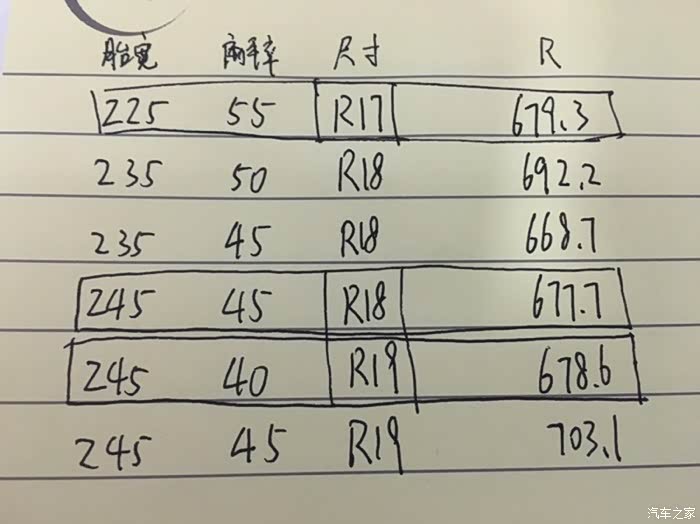 胎宽 扁平率 尺寸 R
225 55 R17 679.3
235 50 R18 692.2
235 45 R18 668.7
245 45 R18 677.7
245 40 R19 678.6
245 45 R19 703.1
汽车之家